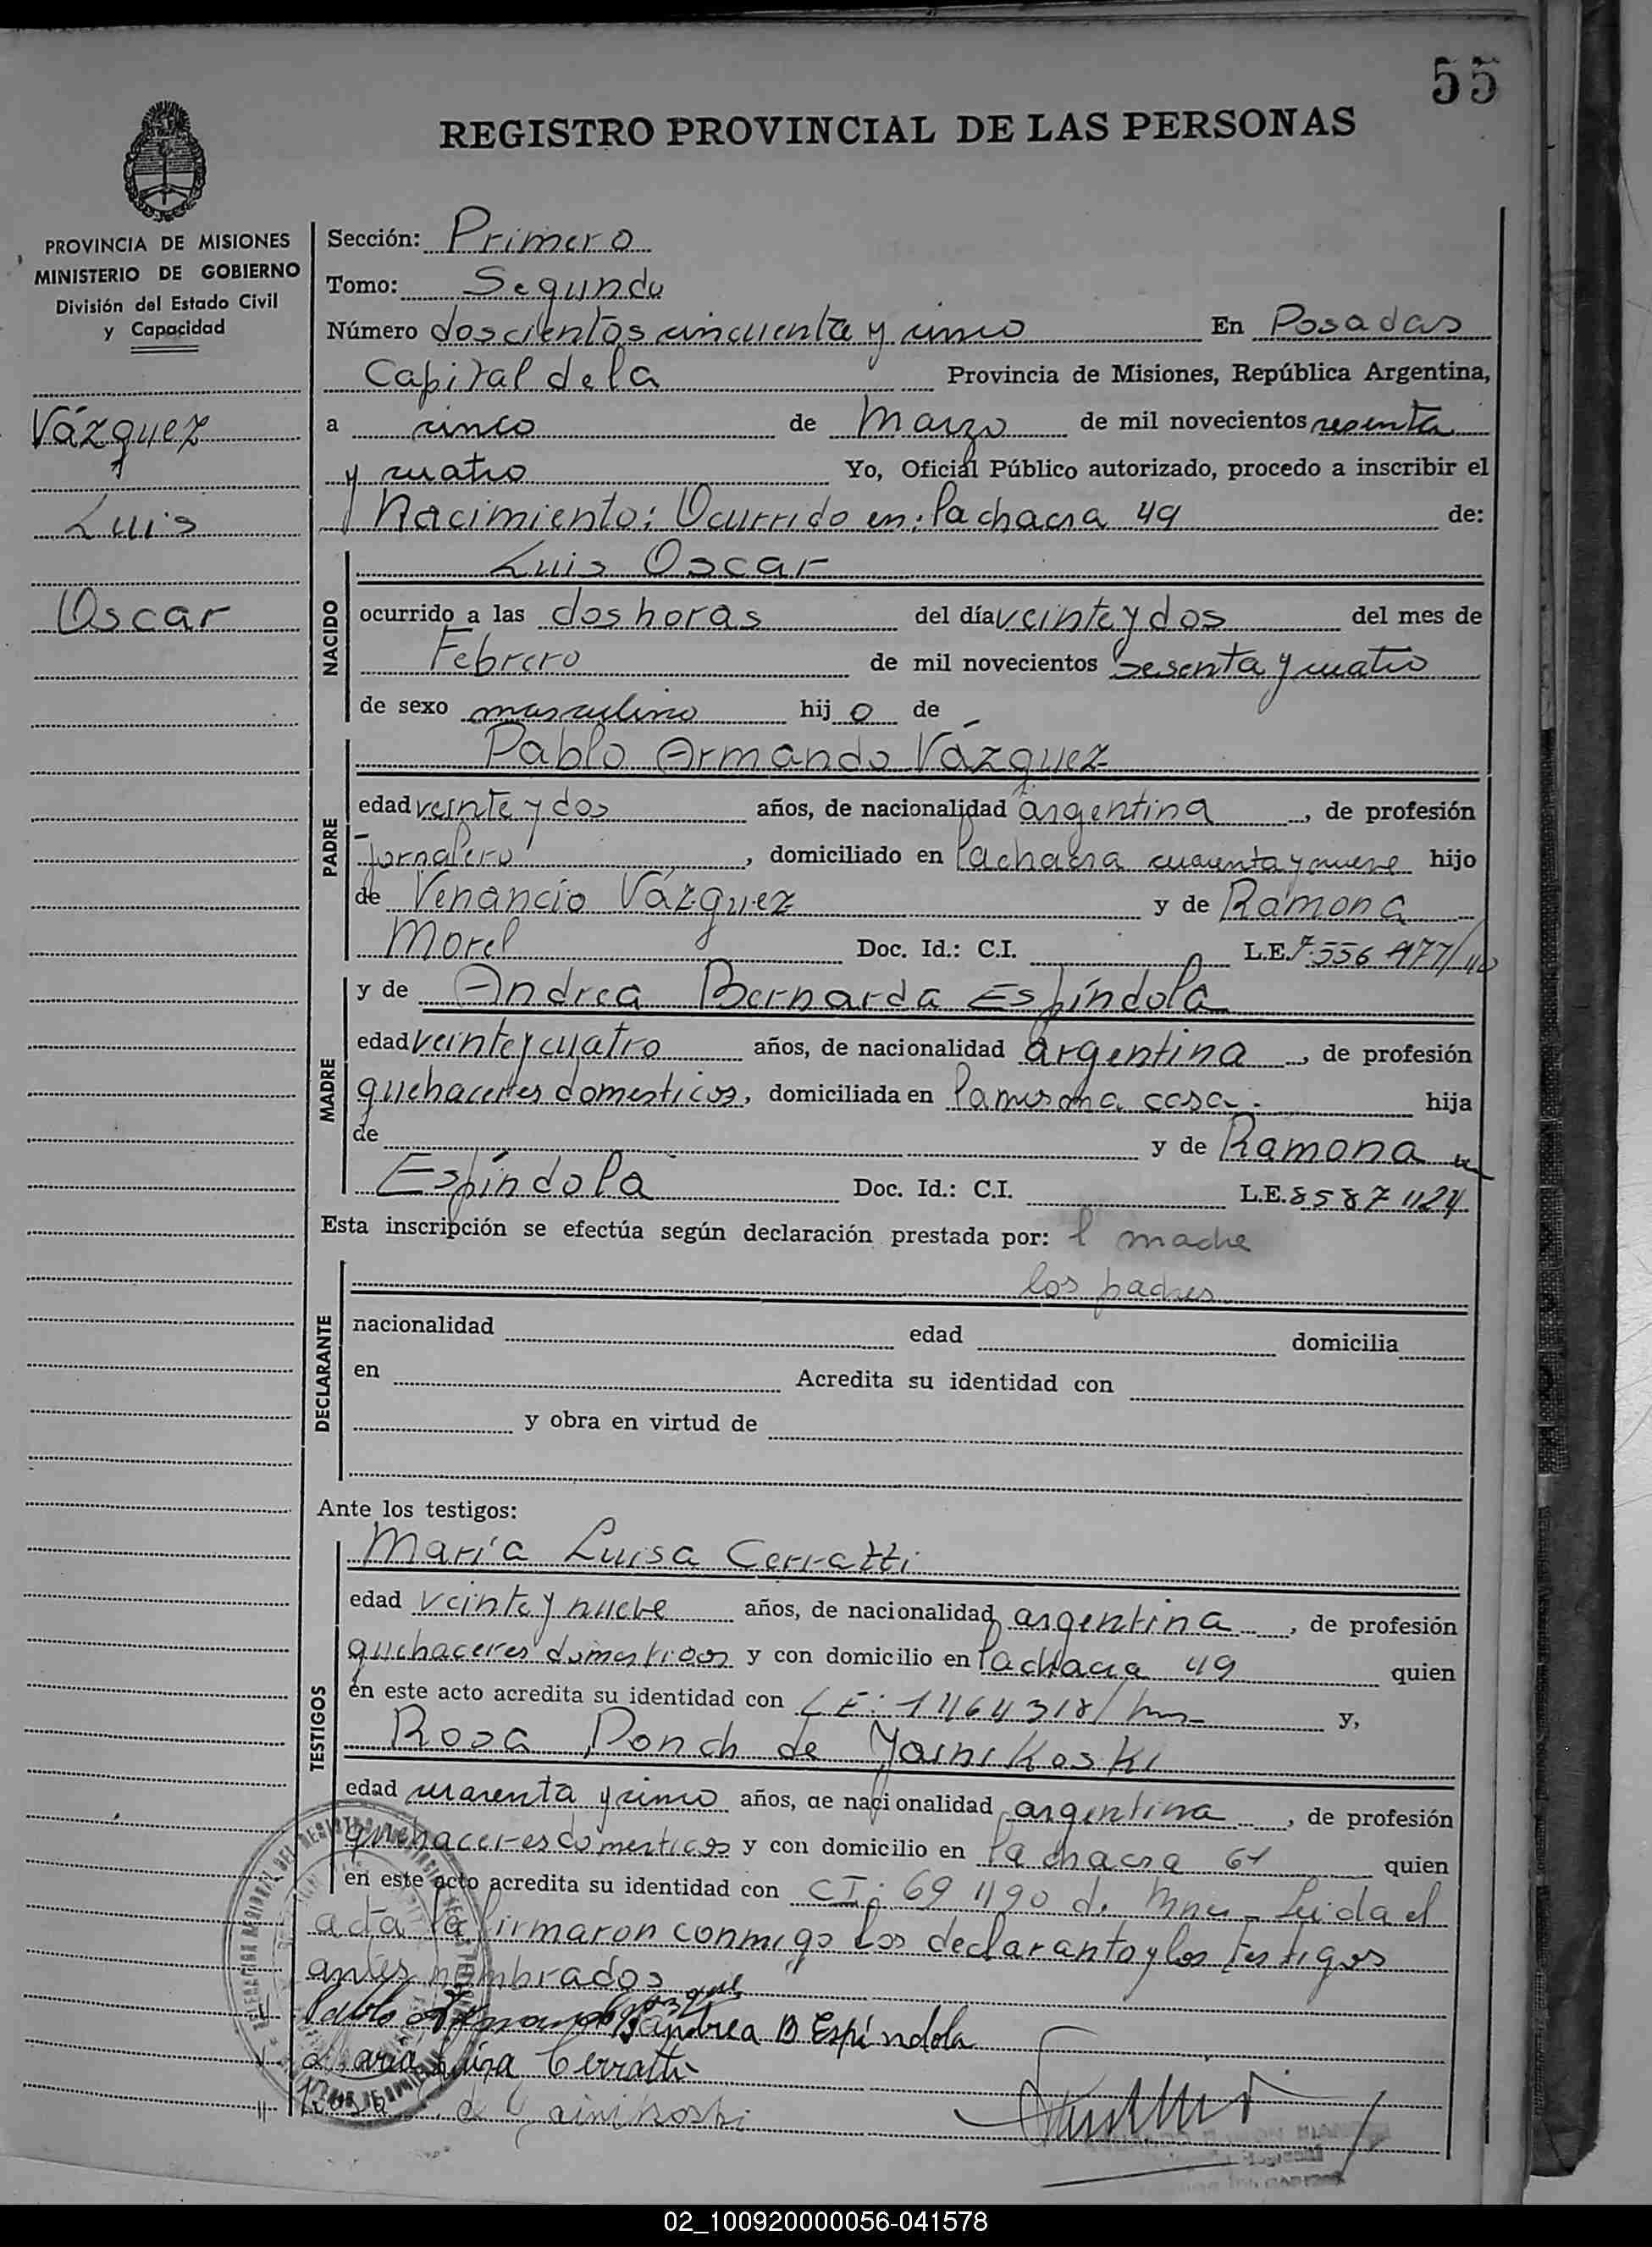 55
REGISTRO PROVINCIAL DE LAS PERSONAS
PROVINCIA DE MISIONES
MINISTERIO DE GOBIERNO
División del Estado Civil
y Capacidad
Vázquez
Luis
Oscar
Sección: Primero
Tomo: Segundo
Número doscientos cincuenta y cinco En Posadas
Capital de la Provincia de Misiones, República Argentina,
a cinco de Marzo de mil novecientos sesenta
y cuatro Yo, Oficial Público autorizado, procedo a inscribir el
Nacimiento: Ocurrido en: la chacra 49 de:
NACIDO
Luis Oscar
ocurrido a las dos horas del día veinte y dos del mes de
Febrero de mil novecientos Sesenta y cuatro
de sexo masculino hijo de
PADRE
Pablo Armando Vázquez
edad veinte y dos años, de nacionalidad argentina, de profesión
Jornalero, domiciliado en la chacra cuarenta y nueve hijo
de Venancio Vázquez y de Ramona
Morel Doc. Id.: C.I. L.E. 7.556.477/
MADRE
y de Andrea Bernarda Espíndola
edad veinte y cuatro años, de nacionalidad argentina, de profesión
quehaceres domesticos, domiciliada en la misma casa. hija
de y de Ramona
Espíndola Doc. Id.: C.I. L.E.
Esta inscripción se efectúa según declaración prestada por: l madre
los padres
DECLARANTE
nacionalidad edad domicilia
en Acredita su identidad con
y obra en virtud de
Ante los testigos:
TESTIGOS
María Luisa Cerratti
edad veinte y nueve años, de nacionalidad argentina, de profesión
quehaceres domesticos y con domicilio en la chacra 49 quien
en este acto acredita su identidad con L E: y,
Rosa Ponch de Yainikoski
edad cuarenta y cinco años, de nacionalidad argentina, de profesión
quehaceres domesticos y con domicilio en la chacra 61 quien
en este acto acredita su identidad con CI: de Mnes- Leida el
acta la firmaron conmigo los declarantes y los testigos
antes nombrados
Pablo Armando Vazquez Andrea B Espíndola
Maria Luisa Cerratti
Rosa de Yainikoski
02_100920000056-041578